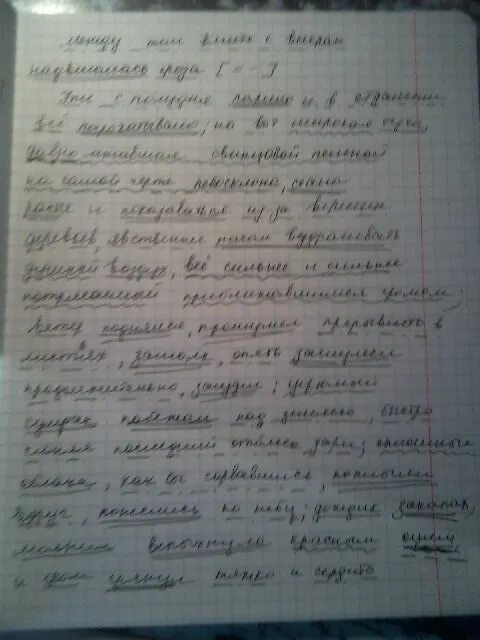 Между тем вместе с вечером
надвигалась гроза [= -]
Уже с полудня парило и в отдалении
всё погрохатывало; но вот широкая туча,
давно лежавшая свинцовой пеленой
на самой черте небосклона, стала
расти и показываться из за вершин
деревьев, явственнее начал вздрагивать
душный воздух, всё сильнее и сильнее
потрясаемый приближавшимся громом;
ветер поднялся, прошумел порывисто в
листьях, замолк, опять зашумел
продолжительно, загудел; угрюмый
сумрак побежал над землёю, быстро
сгоняя последний отблеск зари; сплошные
облака, как бы сорвавшись, поплыли
вдруг, понеслись по небу; дождик закапал,
молния вспыхнула красным огнём
и гром грянул тяжко и сердито